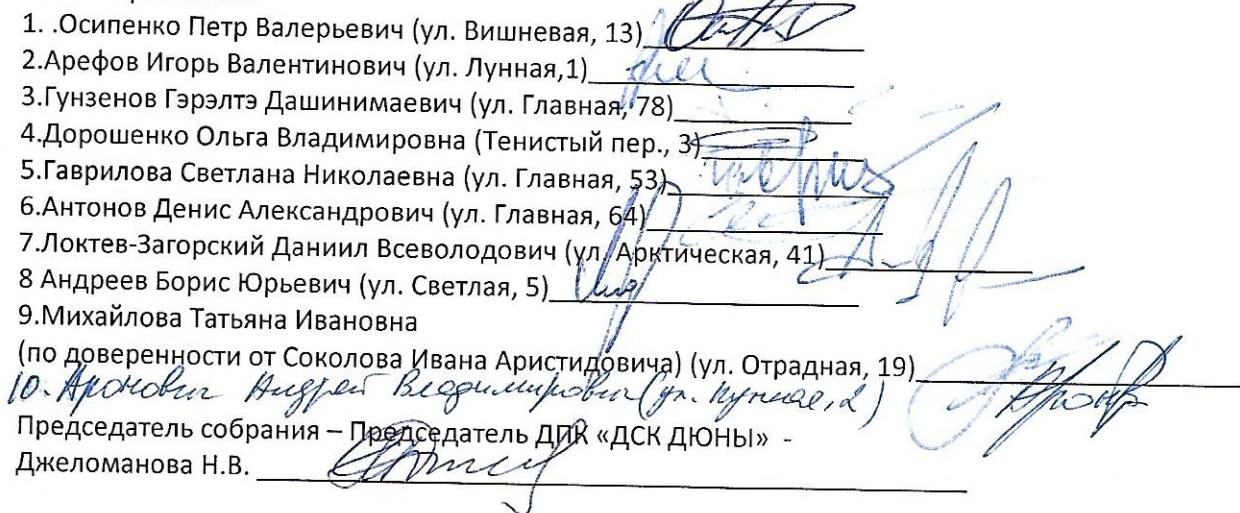 1. .Осипенко Петр Валерьевич (ул. Вишневая, 13)
2.Арефов Игорь Валентинович (ул. Лунная,1)
3.Гунзенов Гэрэлтэ Дашинимаевич (ул. Главная, 78)
4.Дорошенко Ольга Владимировна (Тенистый пер., 3)
5.Гаврилова Светлана Николаевна (ул. Главная, 53)
6.Антонов Денис Александрович (ул. Главная, 64)
7.Локтев-Загорский Даниил Всеволодович (ул. Арктическая, 41)
8 Андреев Борис Юрьевич (ул. Светлая, 5)
9.Михайлова Татьяна Ивановна
(по доверенности от Соколова Ивана Аристидовича) (ул. Отрадная, 19)
10. Аронович Андрей Владимирович (ул. Лунная, 2)
Председатель собрания – Председатель ДПК «ДСК ДЮНЫ» -
Джеломанова Н.В.